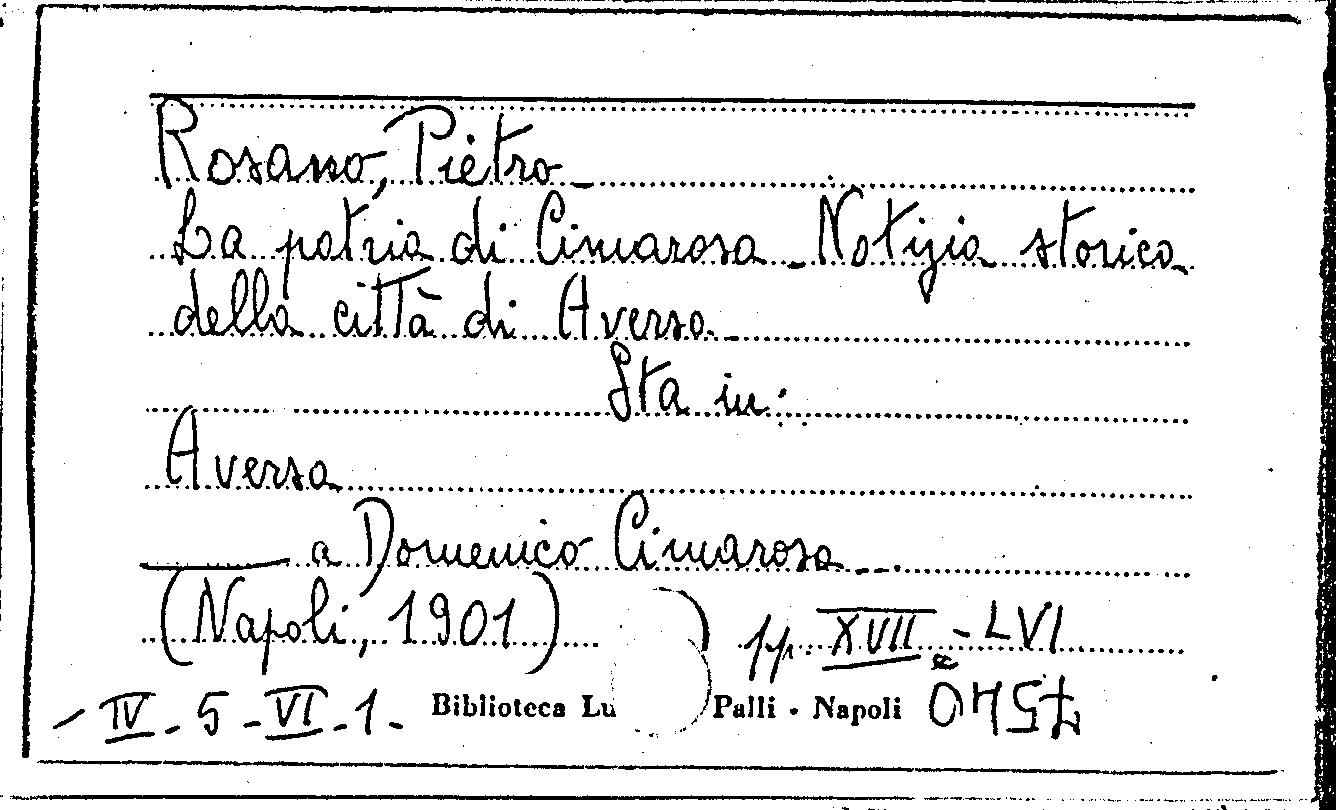 Rosano, Pietro_
La patria di Cimarosa_Notizia storica
della città di Aversa_
Sta in:
Aversa
_____ a Domenico Cimarosa_
(Napoli, 1901) pp. XVII - LVI
- IV - 5 - VI - 1 - Biblioteca Lu Palli - Napoli